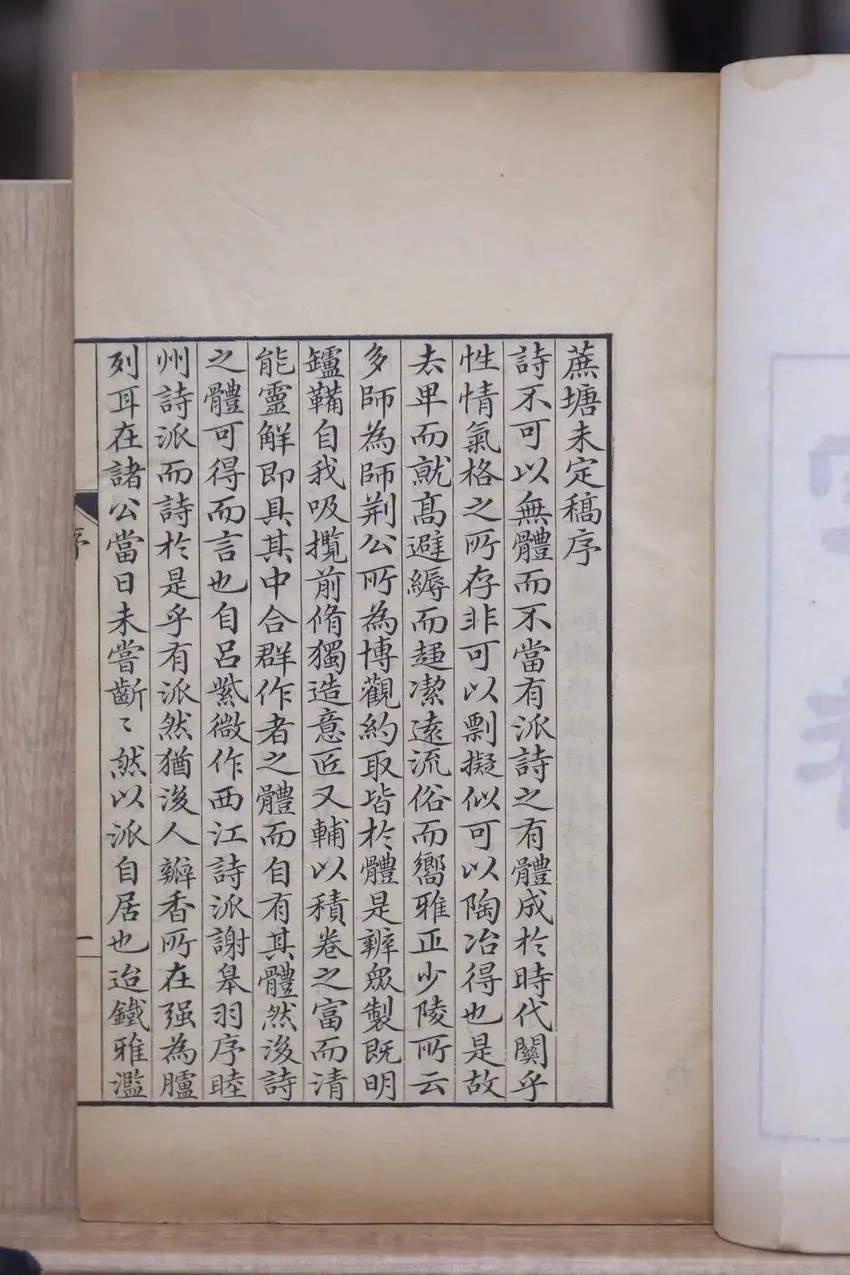 蔗塘未定稿序
詩不可以無體而不當有派詩之有體成於時代關乎
性情氣格之所存非可以剽擬似可以陶冶得也是故
去卑而就髙避縟而趨潔遠流俗而嚮雅正少陵所云
多師為師荆公所為博觀約取皆於體是辨衆製既明
鑪鞴自我吸攬前脩獨造意匠又輔以積卷之富而清
能靈解即具其中合群作者之體而自有其體然後詩
之體可得而言也自呂紫微作西江詩派謝皋羽序睦
州詩派而詩於是乎有派然猶後人瓣香所在强為臚
列耳在諸公當日未嘗齗〻然以派自居也迨鐵雅濫
序
一